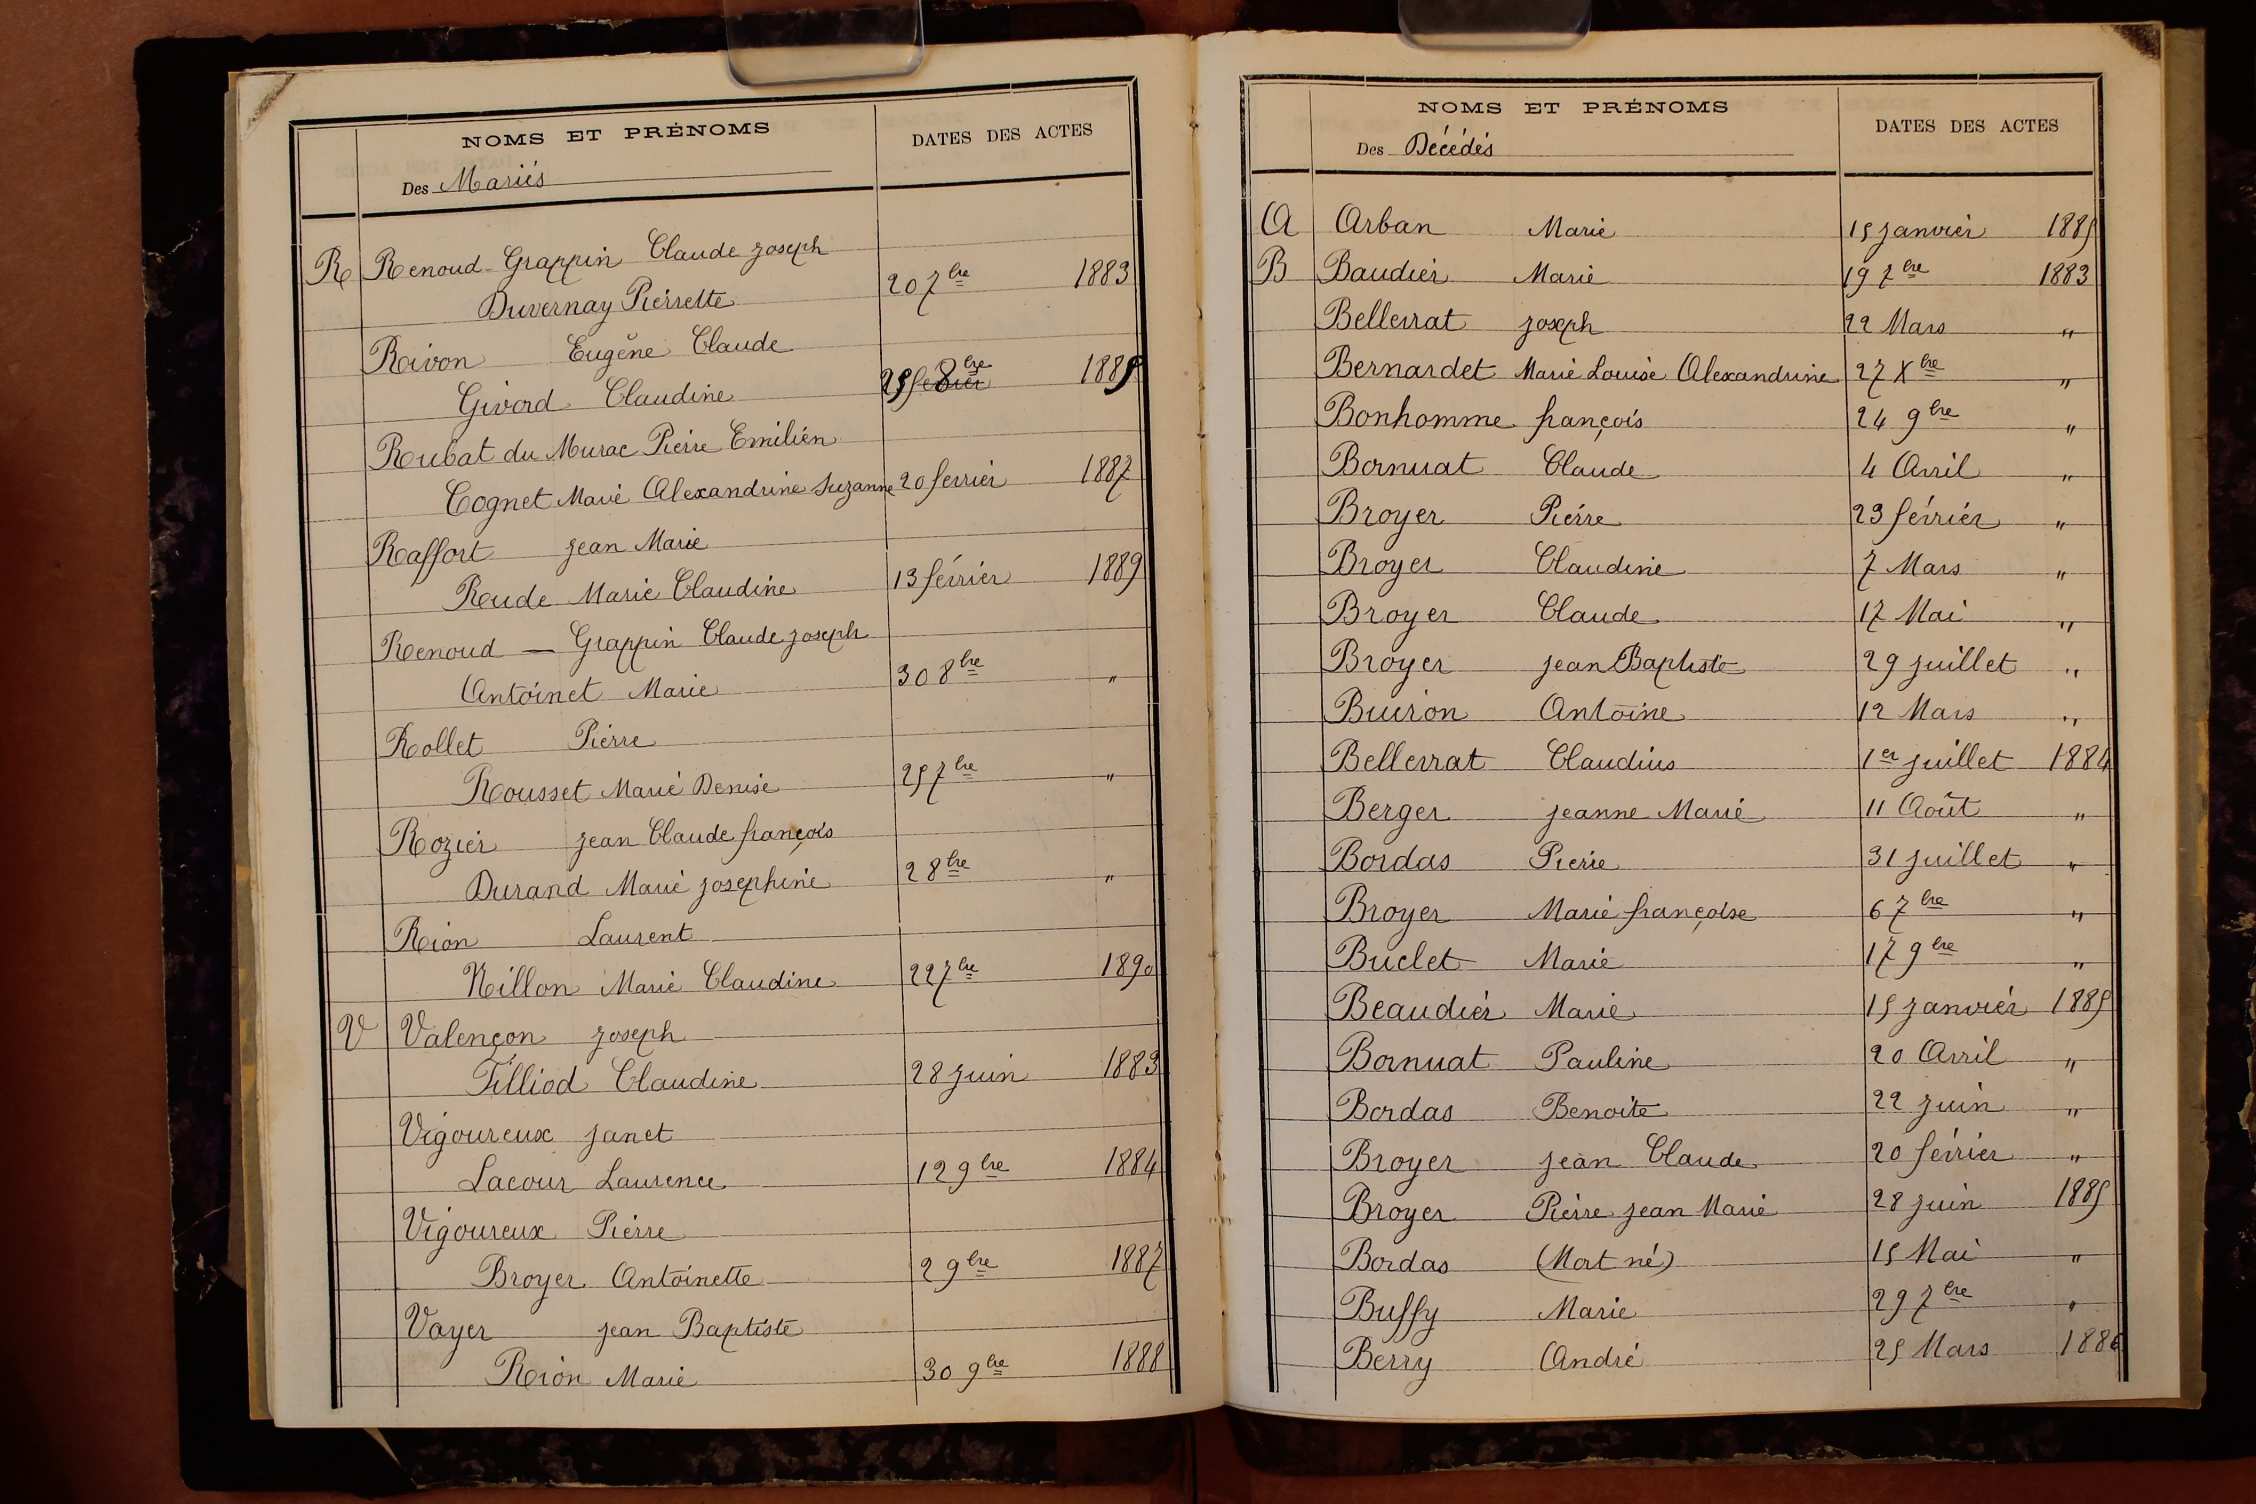 NOMS ET PRÉNOMS DATES DES ACTES
Des Mariés
R Renoud-Grappin Claude joseph
Duvernay Pierrette 20 7bre 1883
Rivon Eugène Claude
Givord Claudine 25 8bre 1885
Rubat du Murac Pierre Emilien
Cognet Marie Alexandrine Suzanne 20 fevrier 1887
Raffort jean Marie
Rude Marie Claudine 13 février 1889
Renoud — Grappin Claude joseph
Antoinet Marie 30 8bre "
Rollet Pierre
Rousset Marie Denise 25 7bre "
Rozier jean Claude françois
Durand Marie josephine 2 8bre "
Rion Laurent
Nillon Marie Claudine 22 7bre 1890
V Valençon joseph
Tilliod Claudine 28 juin 1883
Vigoureux janet
Lacour Laurence 12 9bre 1884
Vigoureux Pierre
Broyer Antoinette 2 9bre 1887
Voyer jean Baptiste
Rion Marie 30 9bre 1888
NOMS ET PRÉNOMS DATES DES ACTES
Des Décédés
A Arban Marie 15 janvier 1885
B Baudier Marie 19 7bre 1883
Bellevrat joseph 22 Mars "
Bernardet Marie Louise Alexandrine 27 Xbre "
Bonhomme françois 24 9bre "
Bornuat Claude 4 Avril "
Broyer Pierre 23 février "
Broyer Claudine 7 Mars "
Broyer Claude 17 Mai "
Broyer jean Baptiste 29 juillet "
Buiron Antoine 12 Mars "
Bellevrat Claudius 1er juillet 1884
Berger jeanne Marie 11 Août "
Bordas Pierre 31 juillet "
Broyer Marie françoise 6 7bre "
Buclet Marie 17 9bre "
Beaudier Marie 15 janvier 1885
Bornuat Pauline 20 Avril "
Bordas Benoite 22 juin "
Broyer jean Claude 20 février "
Broyer Pierre jean Marie 28 juin 1885
Bordas (Mort né) 15 Mai "
Buffy Marie 29 7bre "
Berry André 25 Mars 1886